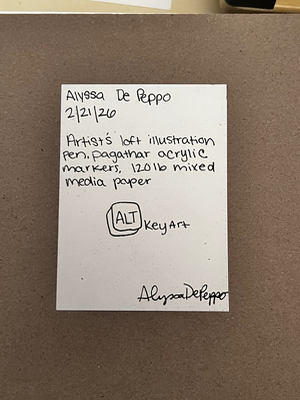 Alyssa De Peppo
2/21/26
Artist's loft illustration
pen, pagathar acrylic
markers, 120 lb mixed
media paper
ALT KeyArt
Alyssa DePeppo